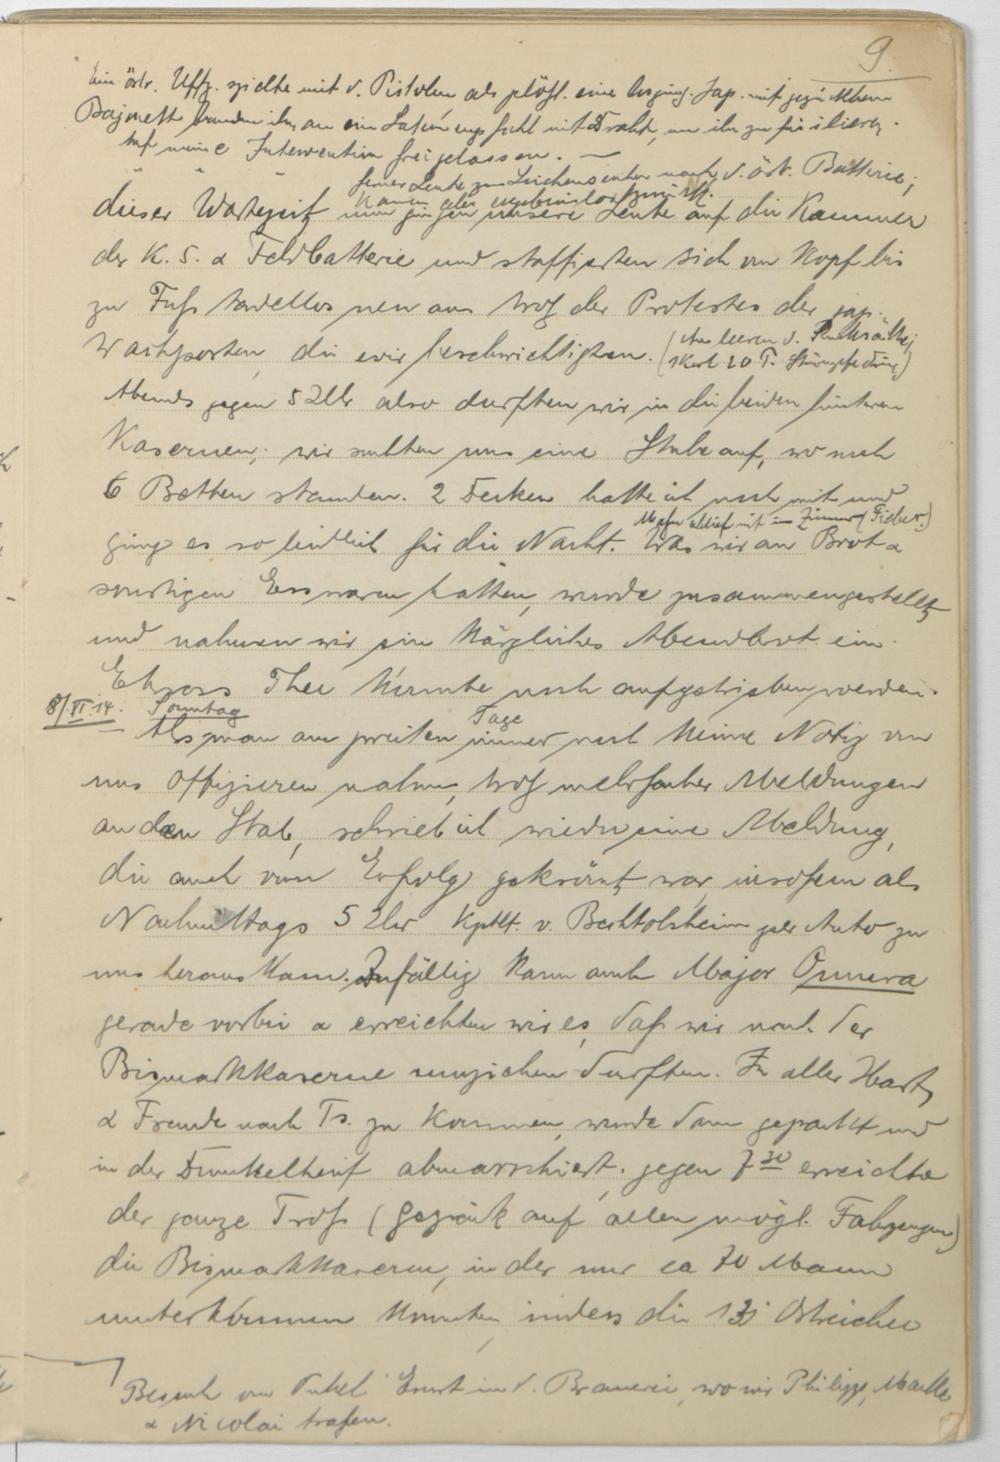 9.
Ein östr. Uffz. spielte mit d. Pistolen als plötzl. eine Jap. mit
Bajonett banden ihn an ein Laternenpfahl mit Draht, um ihn zu füsilieren.
Auf meine Intervention freigelassen. —
ferner Leute zum Leichensuchen nach d. östr. Batterie;
kamen aber ergebnislos zurück.
dieser Wartezeit nun gingen unsere Leute auf die Kammer
der K. 5. & Feldbatterie und staffierten sich von Kopf bis
zu Fuß tadellos neu aus trotz der Protestes der jap.
Wachtposten, die wir beschwichtigten. (Ausleeren d. Rucksäcke;
1 Kerl 20 P. Strümpfe drin)
Abends gegen 5 Uhr also durften wir in die beiden hinteren
Kasernen; wir suchten uns eine Stube auf, wo noch
6 Betten standen. 2 Decken hatte ich noch mit und
schlief mit im Zimmer (Fieber.)
ging es so leidlich für die Nacht. Was wir an Brot &
sonstigen Esswaren hatten, wurde zusammengestellt
und nahmen wir ein kärgliches Abendbrot ein.
Etwas Thee konnte noch aufgetrieben werden.
8/XI.14. Sonntag
Als man am zweiten Tage immer noch keine Notiz von
uns Offizieren nahm, trotz mehrfacher Meldungen
an den Stab, schrieb ich wieder eine Meldung,
die auch von Erfolg gekrönt war, insofern als
Nachmittags 5 Uhr Kptlt. v. Bechtolsheim per Auto zu
uns heraus kam. Zufällig kam auch Major Omura
gerade vorbei & erreichten wir es, daß wir nach der
Bismarkkaserne umziehen durften. In aller Hast,
& Freude nach Ts. zu kommen, wurde dann gepackt und
in der Dunkelheit abmarschiert. gegen 7 30 erreichte
der ganze Troß (Gepäck auf allen mögl. Fahrzeugen)
die Bismarkkaserne, in der nur ca 70 Mann
unterkommen konnten, indess die Östreicher
Besuch von Onkel Ernst in d. Brauerei, wo wir Philipp,
& Nicolai trafen.